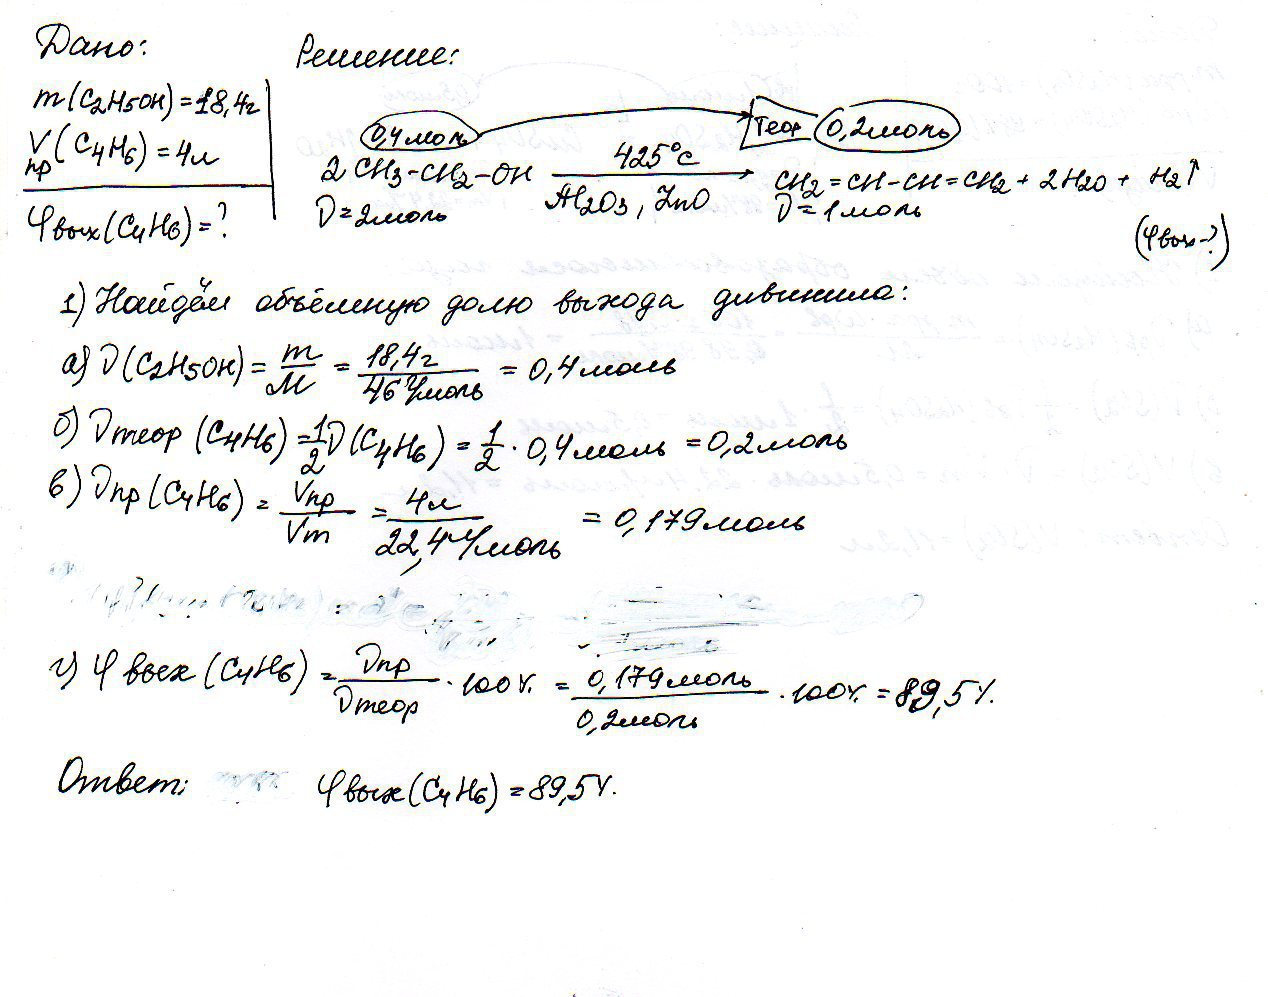 Дано:
Решение:
m(C2H5OH)=18,4г
Vпр(C4H6)=4л
φвых(C4H6)=?
0,4моль
теор 0,2моль
2CH3-CH2-OH 425°C Al2O3, ZnO CH2=CH-CH=CH2 + 2H2O + H2↑
ν=2моль ν=1моль
(φвых-?)
1) Найдём объёмную долю выхода дивинила:
а) ν(C2H5OH) = m/M = 18,4г/46г/моль = 0,4моль
б) νтеор (C4H6) = 1/2 ν(C4H6) = 1/2 · 0,4моль = 0,2моль
в) νпр(C4H6) = Vпр/Vm = 4л/22,4л/моль = 0,179моль
г) φвых(C4H6) = νпр/νтеор · 100% = 0,179моль/0,2моль · 100% = 89,5%.
Ответ: φвых(C4H6) = 89,5%.